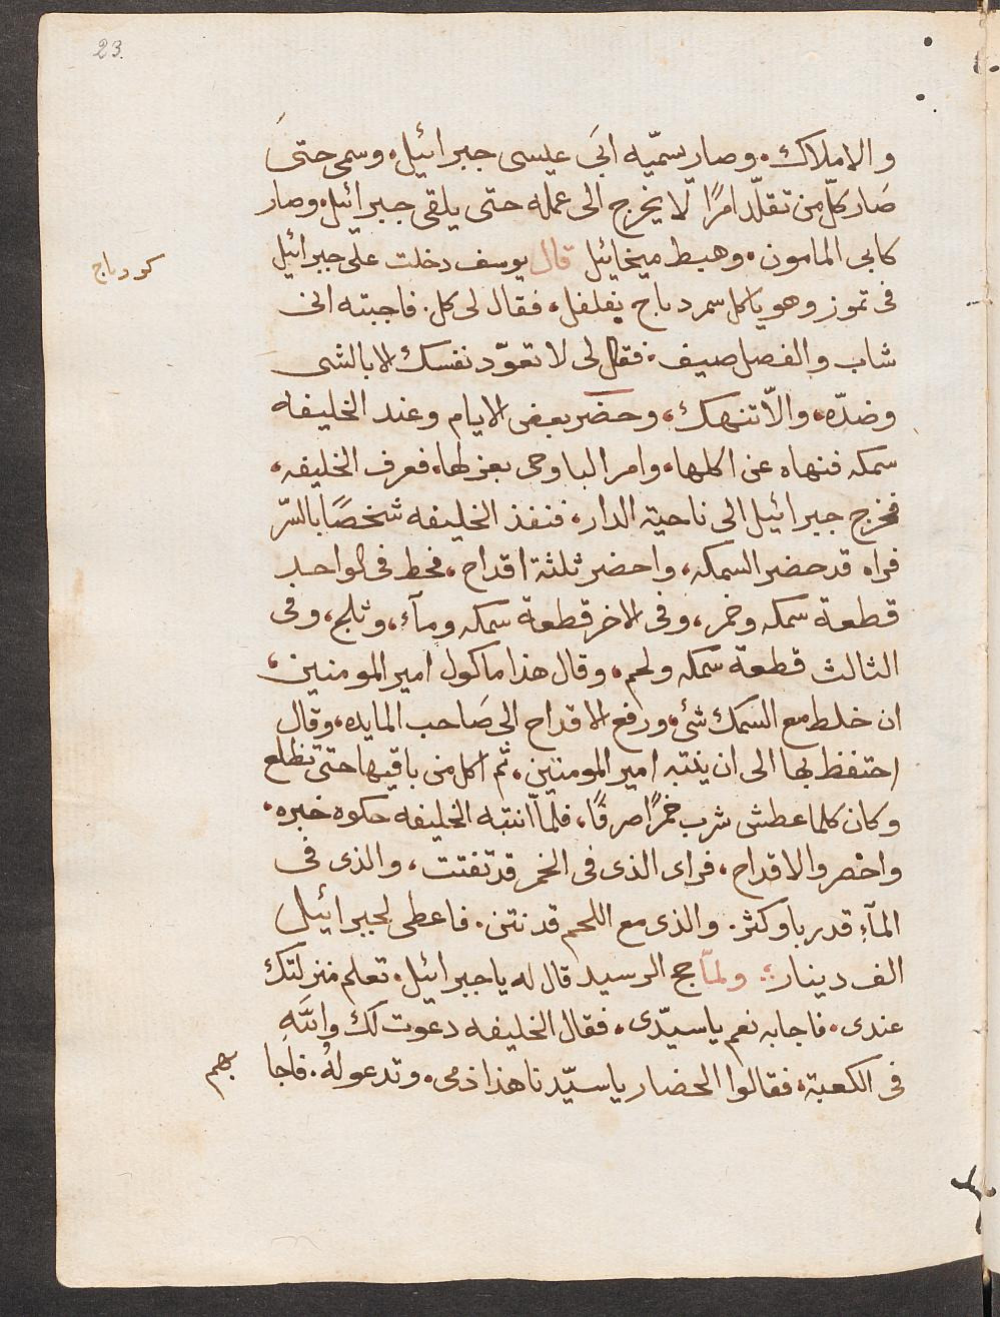 23.
والاملاك، وصار يسميّه ابَى عيسى جبرائيل، وسمى حتىَ
صَار كلّ من تقلّد امرًا لّا يخرج الى عمله حتى يلقى جبرائيل، وصار
كابى المامون، وهبط ميخائيل قال يوسف دخلت على جبرائيل
فى تموز وهو ياكل سمر دباج بفلفل، فقال لى كل. فاجبته انى
شاب والفصل صيف، فقال لى لا تعوّد نفسك الا بالشى
وضدّه، والّا تنهك، وحضر بعض الايام وعند الخليفه
سمكه فنهاه عن اكلها، وامر الباوحى بعزلها، فعرف الخليفه،
فخرج جبرائيل الى ناحية الدار، فنفذ الخليفه شخصًا بالسّر
فراه قد حضر السمكه، واحضر ثلثة اقداح، فحط فى الواحد
قطعة سمكه وخمر، وفى الاخر قطعة سمكه ومآء، وثلج، وفى
الثالث قطعة سمكه ولحم، وقال هذا ماكول امير المومنين،
ان خلط مع السمك شئ، ورفع الاقداح الى صَاحب المايده، وقال
احتفظ بها الى ان ينتبه امير المومنين، ثم اكل من باقيها حتى تظلع
وكان كلما عطش شرب خمرًا صرفًا، فلماّ انتبه الخليفه حكوه خبره،
واحضروا الاقداح، فراى الذى فى الخمر قد تفتت، والذى فى
المآءِ قد ربا وكثر. والذى مع اللحم قد نتن. فاعطى لجبرائيل
الف دينار؛ ولماّ حج الرسيد قال له يا جبرائيل، تعلم منزلتك
عندى، فاجابه نعم يا سيّدى، فقال الخليفه دعوت لك واللَّه
فى الكعبة، فقالوا الحضار يا سيّدنا هذا ذمى، وتدعو لهُ. فاجا
بهم